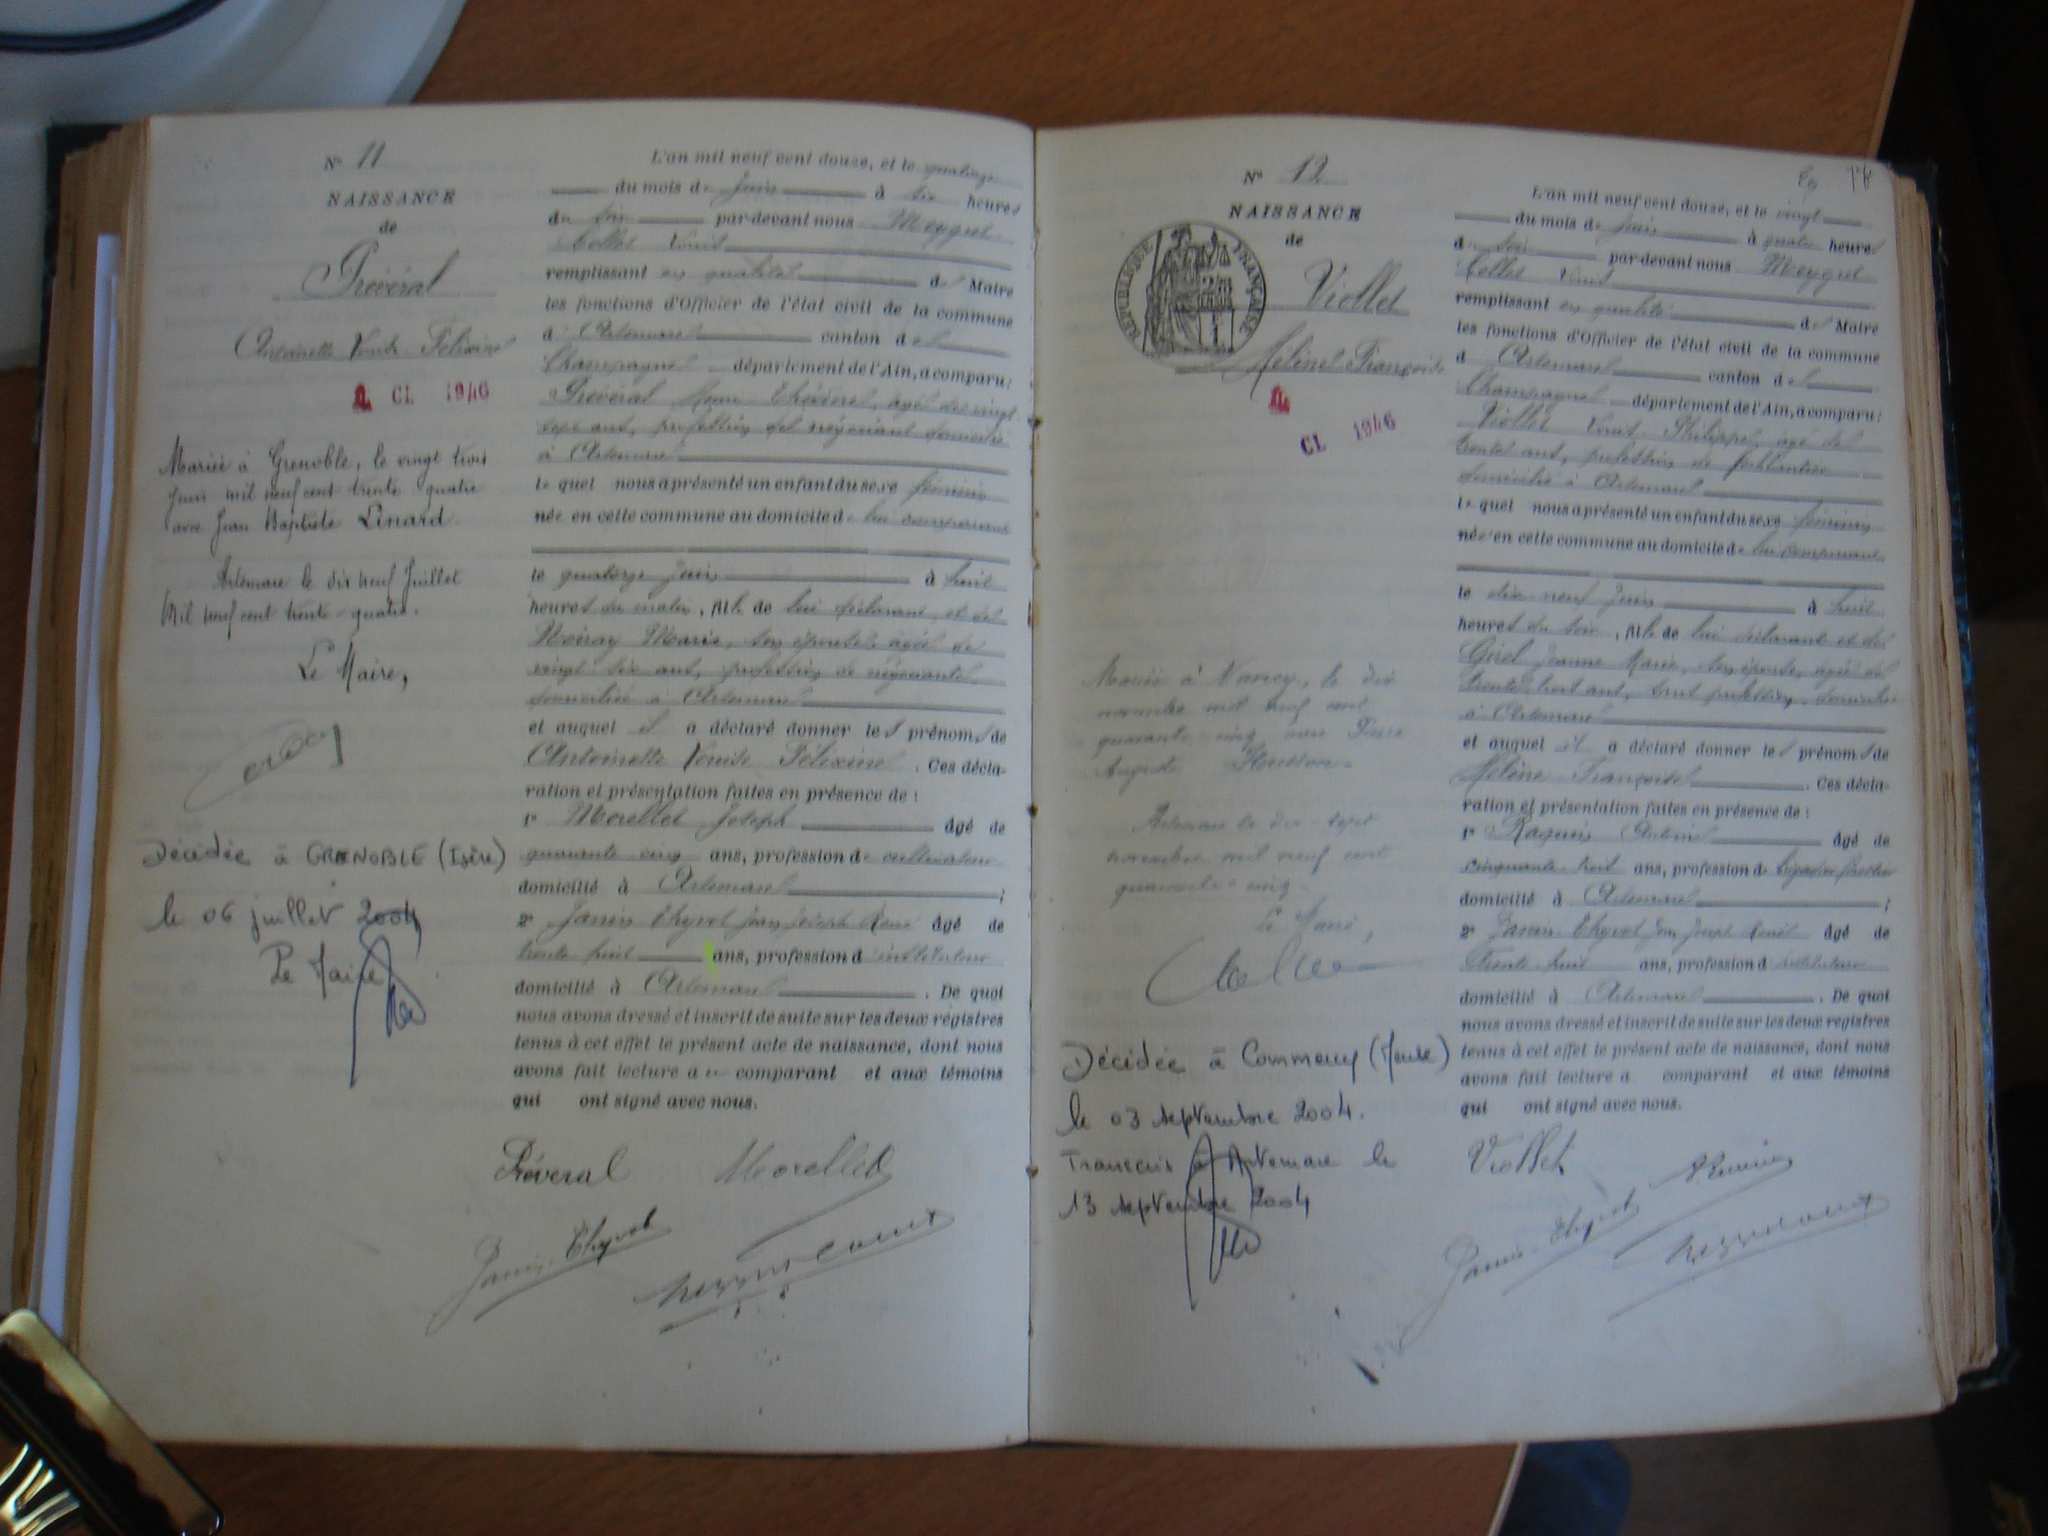 N° 11
NAISSANCE
de
Prévéral
Antoinette Louise Félixine
CL 1946
Mariée à Grenoble, le vingt trois
juin mil neuf cent trente quatre
avec Jean Baptiste Linard.
Artemare le dix neuf Juillet
Mil neuf cent trente-quatre.
Le Maire,
Décédée à GRENOBLE (Isère)
le 06 juillet 2004
Le Maire
L'an mil neuf cent douze, et le quatorze
du mois de juin à six heures
du soir par-devant nous Meygret
Collet Louis
remplissant en qualité de Maire
les fonctions d'Officier de l'état civil de la commune
d'Artemare canton de
Champagne département de l'Ain, a comparu:
Prévéral agé de vingt
sept ans, profession de négociant domicilié
à Artemare
lequel nous a présenté un enfant du sexe féminin
née en cette commune au domicile de lui comparant
le quatorze juin à huit
heures du matin, fille de lui déclarant et de
Noiray Marie, son épouse agée de
vingt six ans, profession de négociante
domiciliée à Artemare
et auquel il a déclaré donner les prénoms de
Antoinette Louise Félixine. Ces décla-
ration et présentation faites en présence de:
1° Morellet Joseph âgé de
quarante cinq ans, profession de cultivateur
domicilié à Artemare;
2° Janin Thyvot Jean Joseph René âgé de
trente huit ans, profession d'instituteur
domicilié à Artemare. De quoi
nous avons dressé et inscrit de suite sur les deux registres
tenus à cet effet le présent acte de naissance, dont nous
avons fait lecture au comparant et aux témoins
qui ont signé avec nous.
Prévéral Morellet
Janin-Thyvot
N° 12
NAISSANCE
de
RÉPUBLIQUE FRANÇAISE
Viollet
Hélène Françoise
CL 1946
Mariée à Nancy, le dix
novembre mil neuf cent
quarante-cinq avec
Auguste Husson.
Artemare le dix-sept
novembre mil neuf cent
quarante-cinq.
Le Maire,
Décédée à Commercy (Meuse)
le 03 septembre 2004.
Transcris à Artemare le
13 septembre 2004
L'an mil neuf cent douze, et le vingt
du mois de juin à quatre heures
du soir par-devant nous Meygret
Collet Louis
remplissant en qualité de Maire
les fonctions d'Officier de l'état civil de la commune
d'Artemare canton de
Champagne département de l'Ain, a comparu:
Viollet Louis Philippe, agé de
trente ans, profession de ferblantier
domicilié à Artemare
lequel nous a présenté un enfant du sexe féminin
née en cette commune au domicile de lui comparant
le dix-neuf juin à huit
heures du soir, fille de lui déclarant et de
Girel Jeanne Marie, son épouse, agée de
trente trois ans, sans profession, domiciliée
à Artemare
et auquel il a déclaré donner les prénoms de
Hélène Françoise. Ces décla-
ration et présentation faites en présence de:
1° âgé de
cinquante trois ans, profession de brigadier forestier
domicilié à Artemare;
2° Janin Thyvot Jean Joseph René âgé de
Trente huit ans, profession d'instituteur
domicilié à Artemare. De quoi
nous avons dressé et inscrit de suite sur les deux registres
tenus à cet effet le présent acte de naissance, dont nous
avons fait lecture a comparant et aux témoins
qui ont signé avec nous.
Viollet
Janin-Thyvot